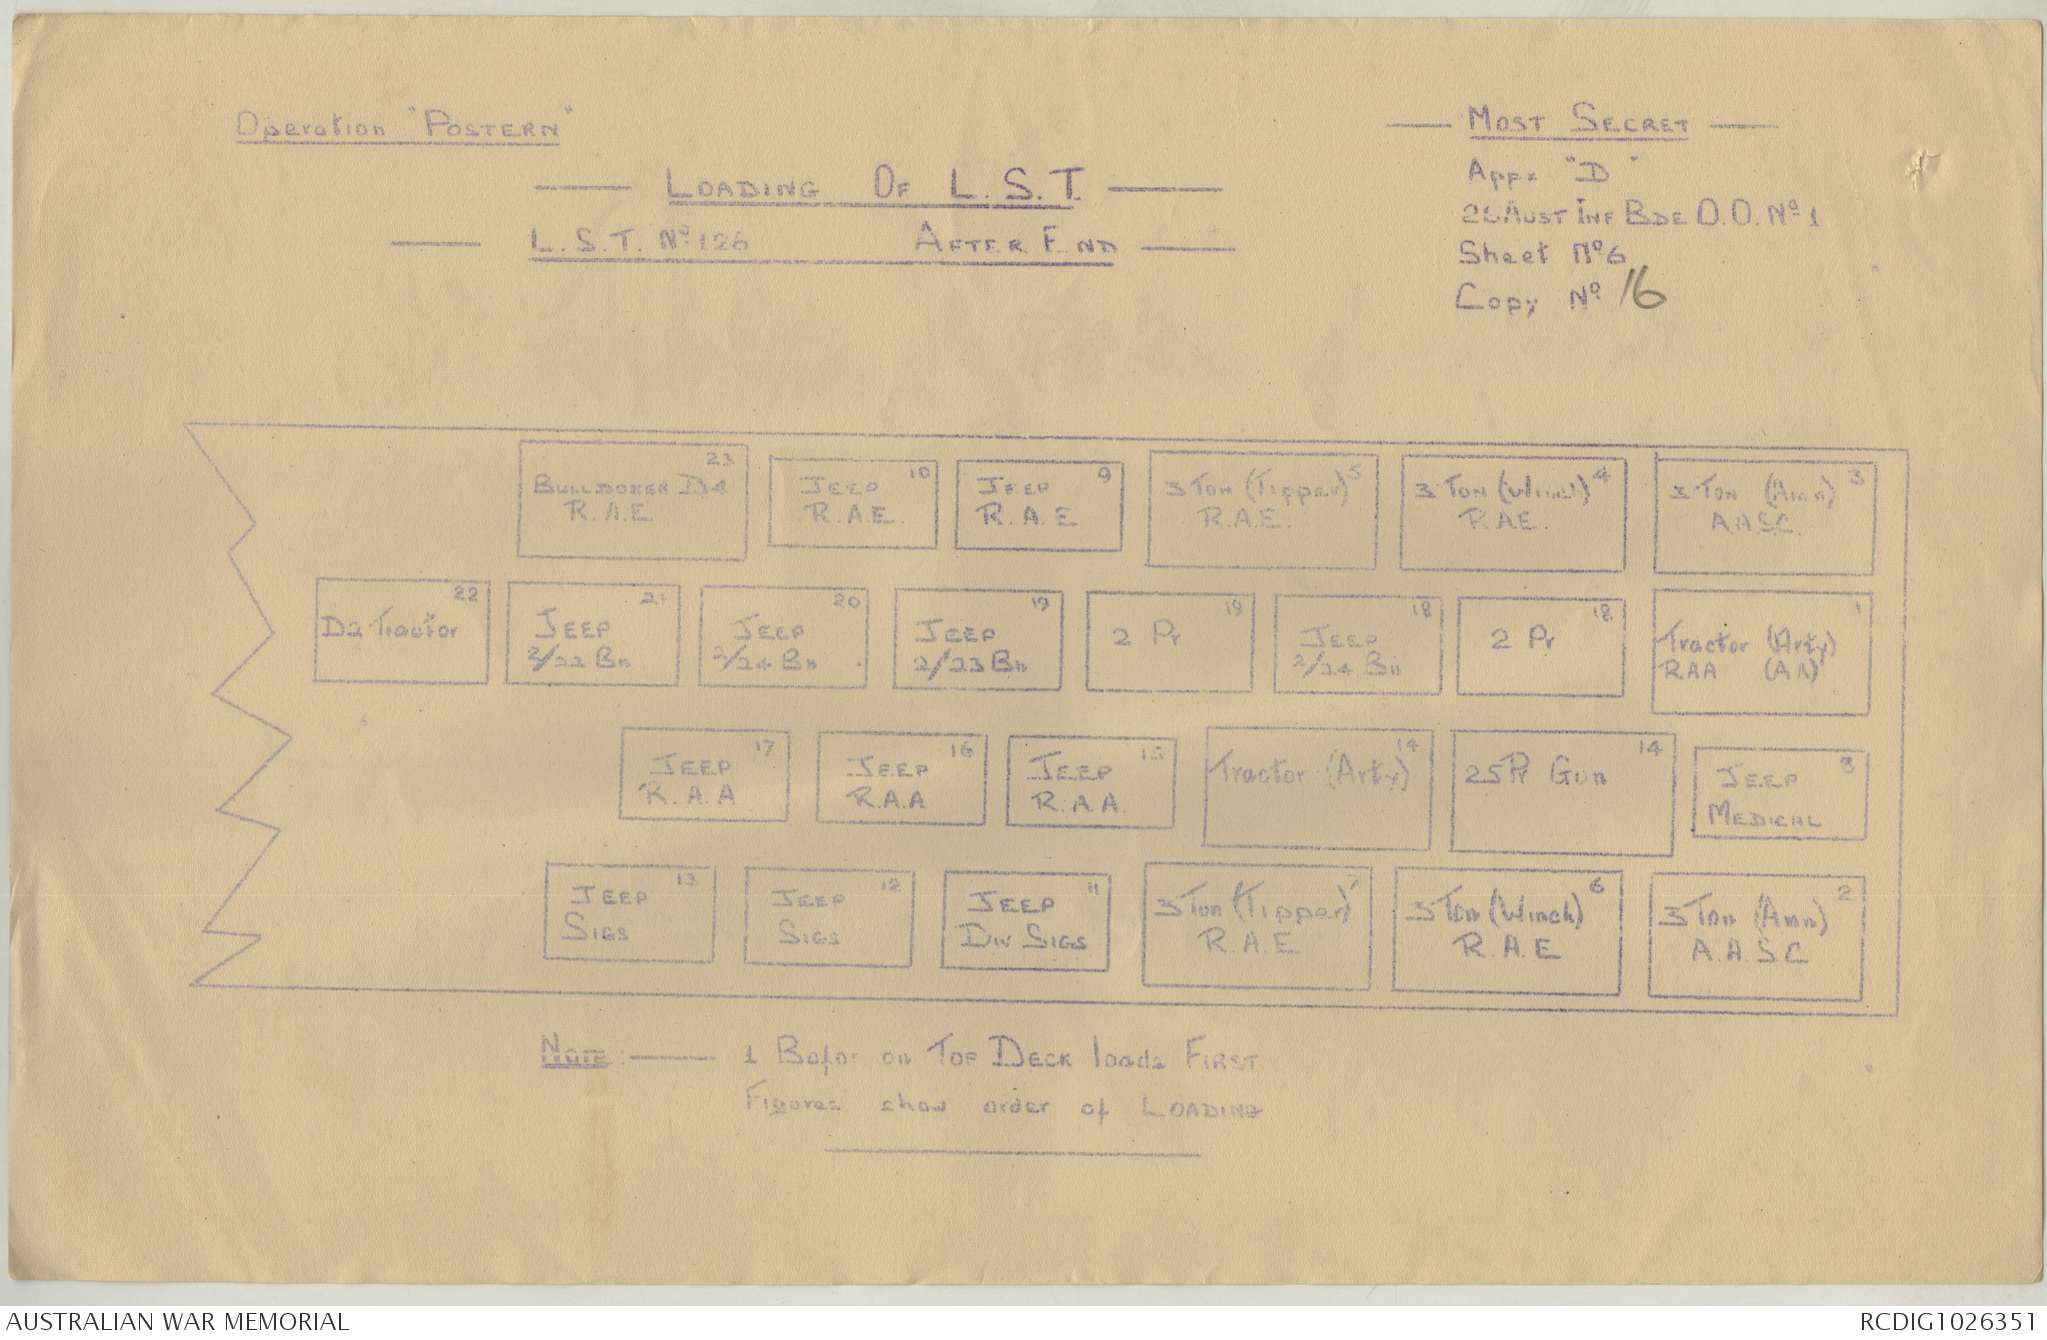 Operation "POSTERN"
MOST SECRET
LOADING OF L.S.T.
Appx "D"
26 AUST INF BDE O.O. Nº 1
L.S.T. Nº 126 AFTER END
Sheet Nº 6
Copy Nº 16
23
BULLDOZER D4
R.A.E.
10
JEEP
R.A.E.
9
JEEP
R.A.E
5
3 TON (Tipper)
R.A.E.
4
3 TON (Winch)
R.A.E.
3
3 TON (Amn)
A.A.S.C.
22
D2 Tractor
21
JEEP
2/23 Bn
20
JEEP
2/24 Bn
19
JEEP
2/23 Bn
19
2 Pr
18
JEEP
2/24 Bn
18
2 Pr
1
Tractor (Arty)
RAA (AA)
17
JEEP
R.A.A
16
JEEP
R.A.A
15
JEEP
R.A.A.
14
Tractor (Arty)
14
25 Pr Gun
8
JEEP
MEDICAL
13
JEEP
SIGS
12
JEEP
SIGS
11
JEEP
DIV SIGS
7
3 Ton (Tipper)
R.A.E
6
3 Ton (Winch)
R.A.E
2
3 Ton (Amn)
A.A.S.C
NOTE:- 1 Bofor on TOP DECK loads FIRST
Figures show order of LOADING
AUSTRALIAN WAR MEMORIAL
RCDIG1026351